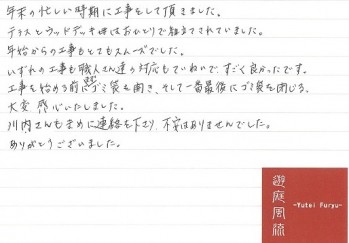 年末の忙しい時期に工事をして頂きました。
テラスとウッドデッキ時はおひとりで組立てされていました。
年始からの工事もとてもスムーズでした。
いずれの工事も職人さん達の対応もていねいで、すごく良かったです。
工事を始める前必ずゴミ袋を開き、そして一番最後にゴミ袋を閉じる。
大変 感心いたしました。
川内さんもまめに連絡を下さり、不安はありませんでした。
ありがとうございました。
遊庭風流
-Yutei Furyu-